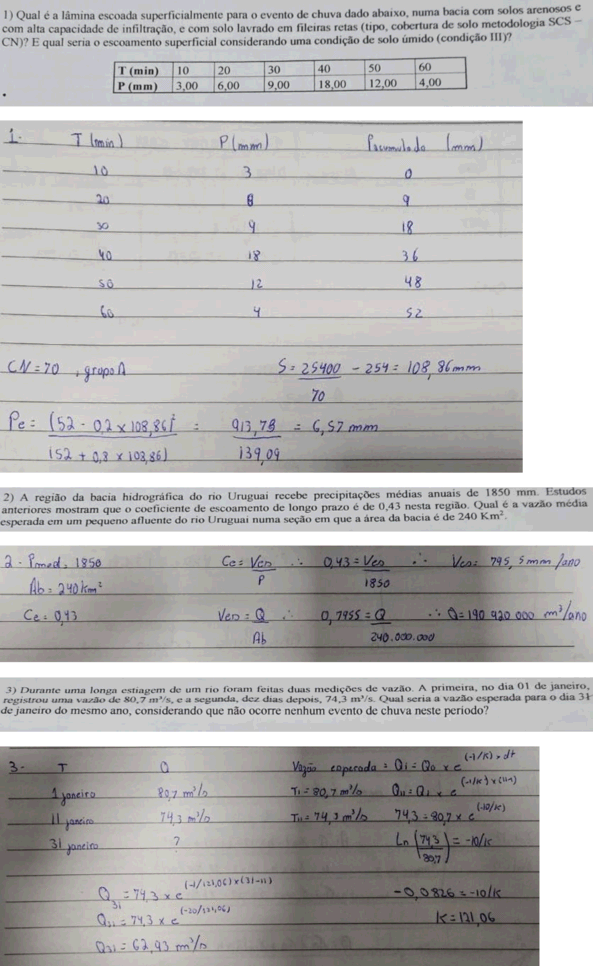 1) Qual é a lâmina escoada superficialmente para o evento de chuva dado abaixo, numa bacia com solos arenosos e
com alta capacidade de infiltração, e com solo lavrado em fileiras retas (tipo, cobertura de solo metodologia SCS –
CN)? E qual seria o escoamento superficial considerando uma condição de solo úmido (condição III)?
T (min) 10 20 30 40 50 60
P (mm) 3,00 6,00 9,00 18,00 12,00 4,00
1- T (min) P (mm) Pacumulado (mm)
10 3 0
20 6 9
30 9 18
40 18 36
50 12 48
60 4 52
CN = 70 , grupo A S = 25400 - 254 = 108,86 mm
70
Pe = (52 - 0,2 x 108,86)² = 913,78 = 6,57 mm
(52 + 0,8 x 108,86) 139,09
2) A região da bacia hidrográfica do rio Uruguai recebe precipitações médias anuais de 1850 mm. Estudos
anteriores mostram que o coeficiente de escoamento de longo prazo é de 0,43 nesta região. Qual é a vazão média
esperada em um pequeno afluente do rio Uruguai numa seção em que a área da bacia é de 240 Km².
2- Pmed. 1850 Ce = Ves ∴ 0,43 = Ves ∴ Ves = 795,5 mm/ano
P 1850
Ab = 240 km²
Ce = 0,43 Ves = Q ∴ 0,7955 = Q ∴ Q = 190 920 000 m³/ano
Ab 240.000.000
3) Durante uma longa estiagem de um rio foram feitas duas medições de vazão. A primeira, no dia 01 de janeiro,
registrou uma vazão de 80,7 m³/s, e a segunda, dez dias depois, 74,3 m³/s. Qual seria a vazão esperada para o dia 31
de janeiro do mesmo ano, considerando que não ocorre nenhum evento de chuva neste período?
3- T Q Vazão esperada = Qi = Qo x e (-1/K) x dt
1 janeiro 80,7 m³/s T1 = 80,7 m³/s Q11 = Q1 x e (-1/K) x (11-1)
11 janeiro 74,3 m³/s T11 = 74,3 m³/s 74,3 = 80,7 x e (-10/K)
31 janeiro ? Ln (74,3/80,7) = -10/K
Q31 = 74,3 x e (-1/121,06) x (31-11) -0,0826 = -10/K
Q31 = 74,3 x e (-20/121,06) K = 121,06
Q31 = 62,93 m³/s